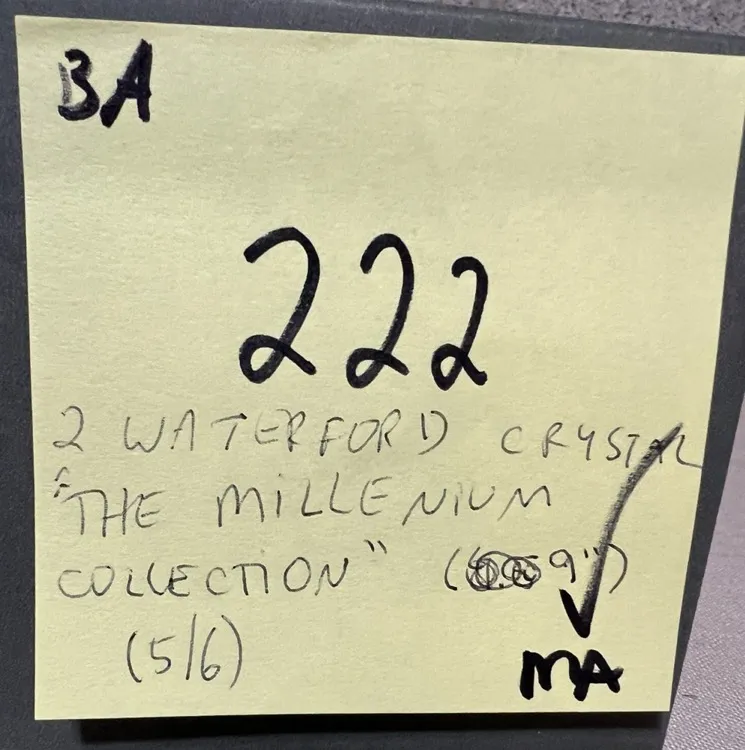 BA
222
2 WATERFORD CRYSTAL
"THE MILLENIUM
COLLECTION" (9")
(5/6)
MA